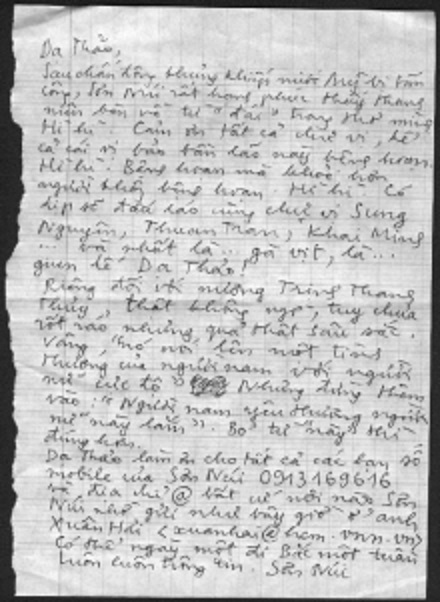 Da Thảo,
Sau chấn động khủng khiếp nước Mỹ bị tấn
công, Sơn Núi rất hạnh phúc thấy thang
bàn về từ "đại" trong thư mừng
Hi hi. Cám ơn tất cả chư vị, kể
cả cái vị bảo tôn lão này bệnh hoạn.
Hi hi. Bệnh hoạn mà khoẻ hơn
người không bệnh hoạn. Hi hi. Có
dịp sẽ đấu láo cùng chư vị Sung
Nguyễn, Thuan Tran, Khai Minh
... và nhất là ... gà vịt, là ...
quen là Da Thảo!
Riêng đối với nường Trịnh Thanh
Thủy, thật không ngờ, tuy chưa
rốt ráo nhưng quả thật sâu sắc.
Vâng, "nó nói lên một tình
thương của người nam với người
nữ cực độ" Nhưng đừng thêm
vào: "Người nam yêu thương người
nữ này lắm". Bỏ từ "này" thì
đúng hơn.
Da Thảo làm ơn cho tất cả các bạn số
mobile của Sơn Núi 0913169616
và địa chỉ @ bất cứ nơi nào Sơn
Núi nhờ gửi như bây giờ ở anh
Xuân Hải <xuanhai@hcm.vnn.vn>
Có thể ngày một đi Bắc một tuần
Luôn luôn trông tin. Sơn Núi